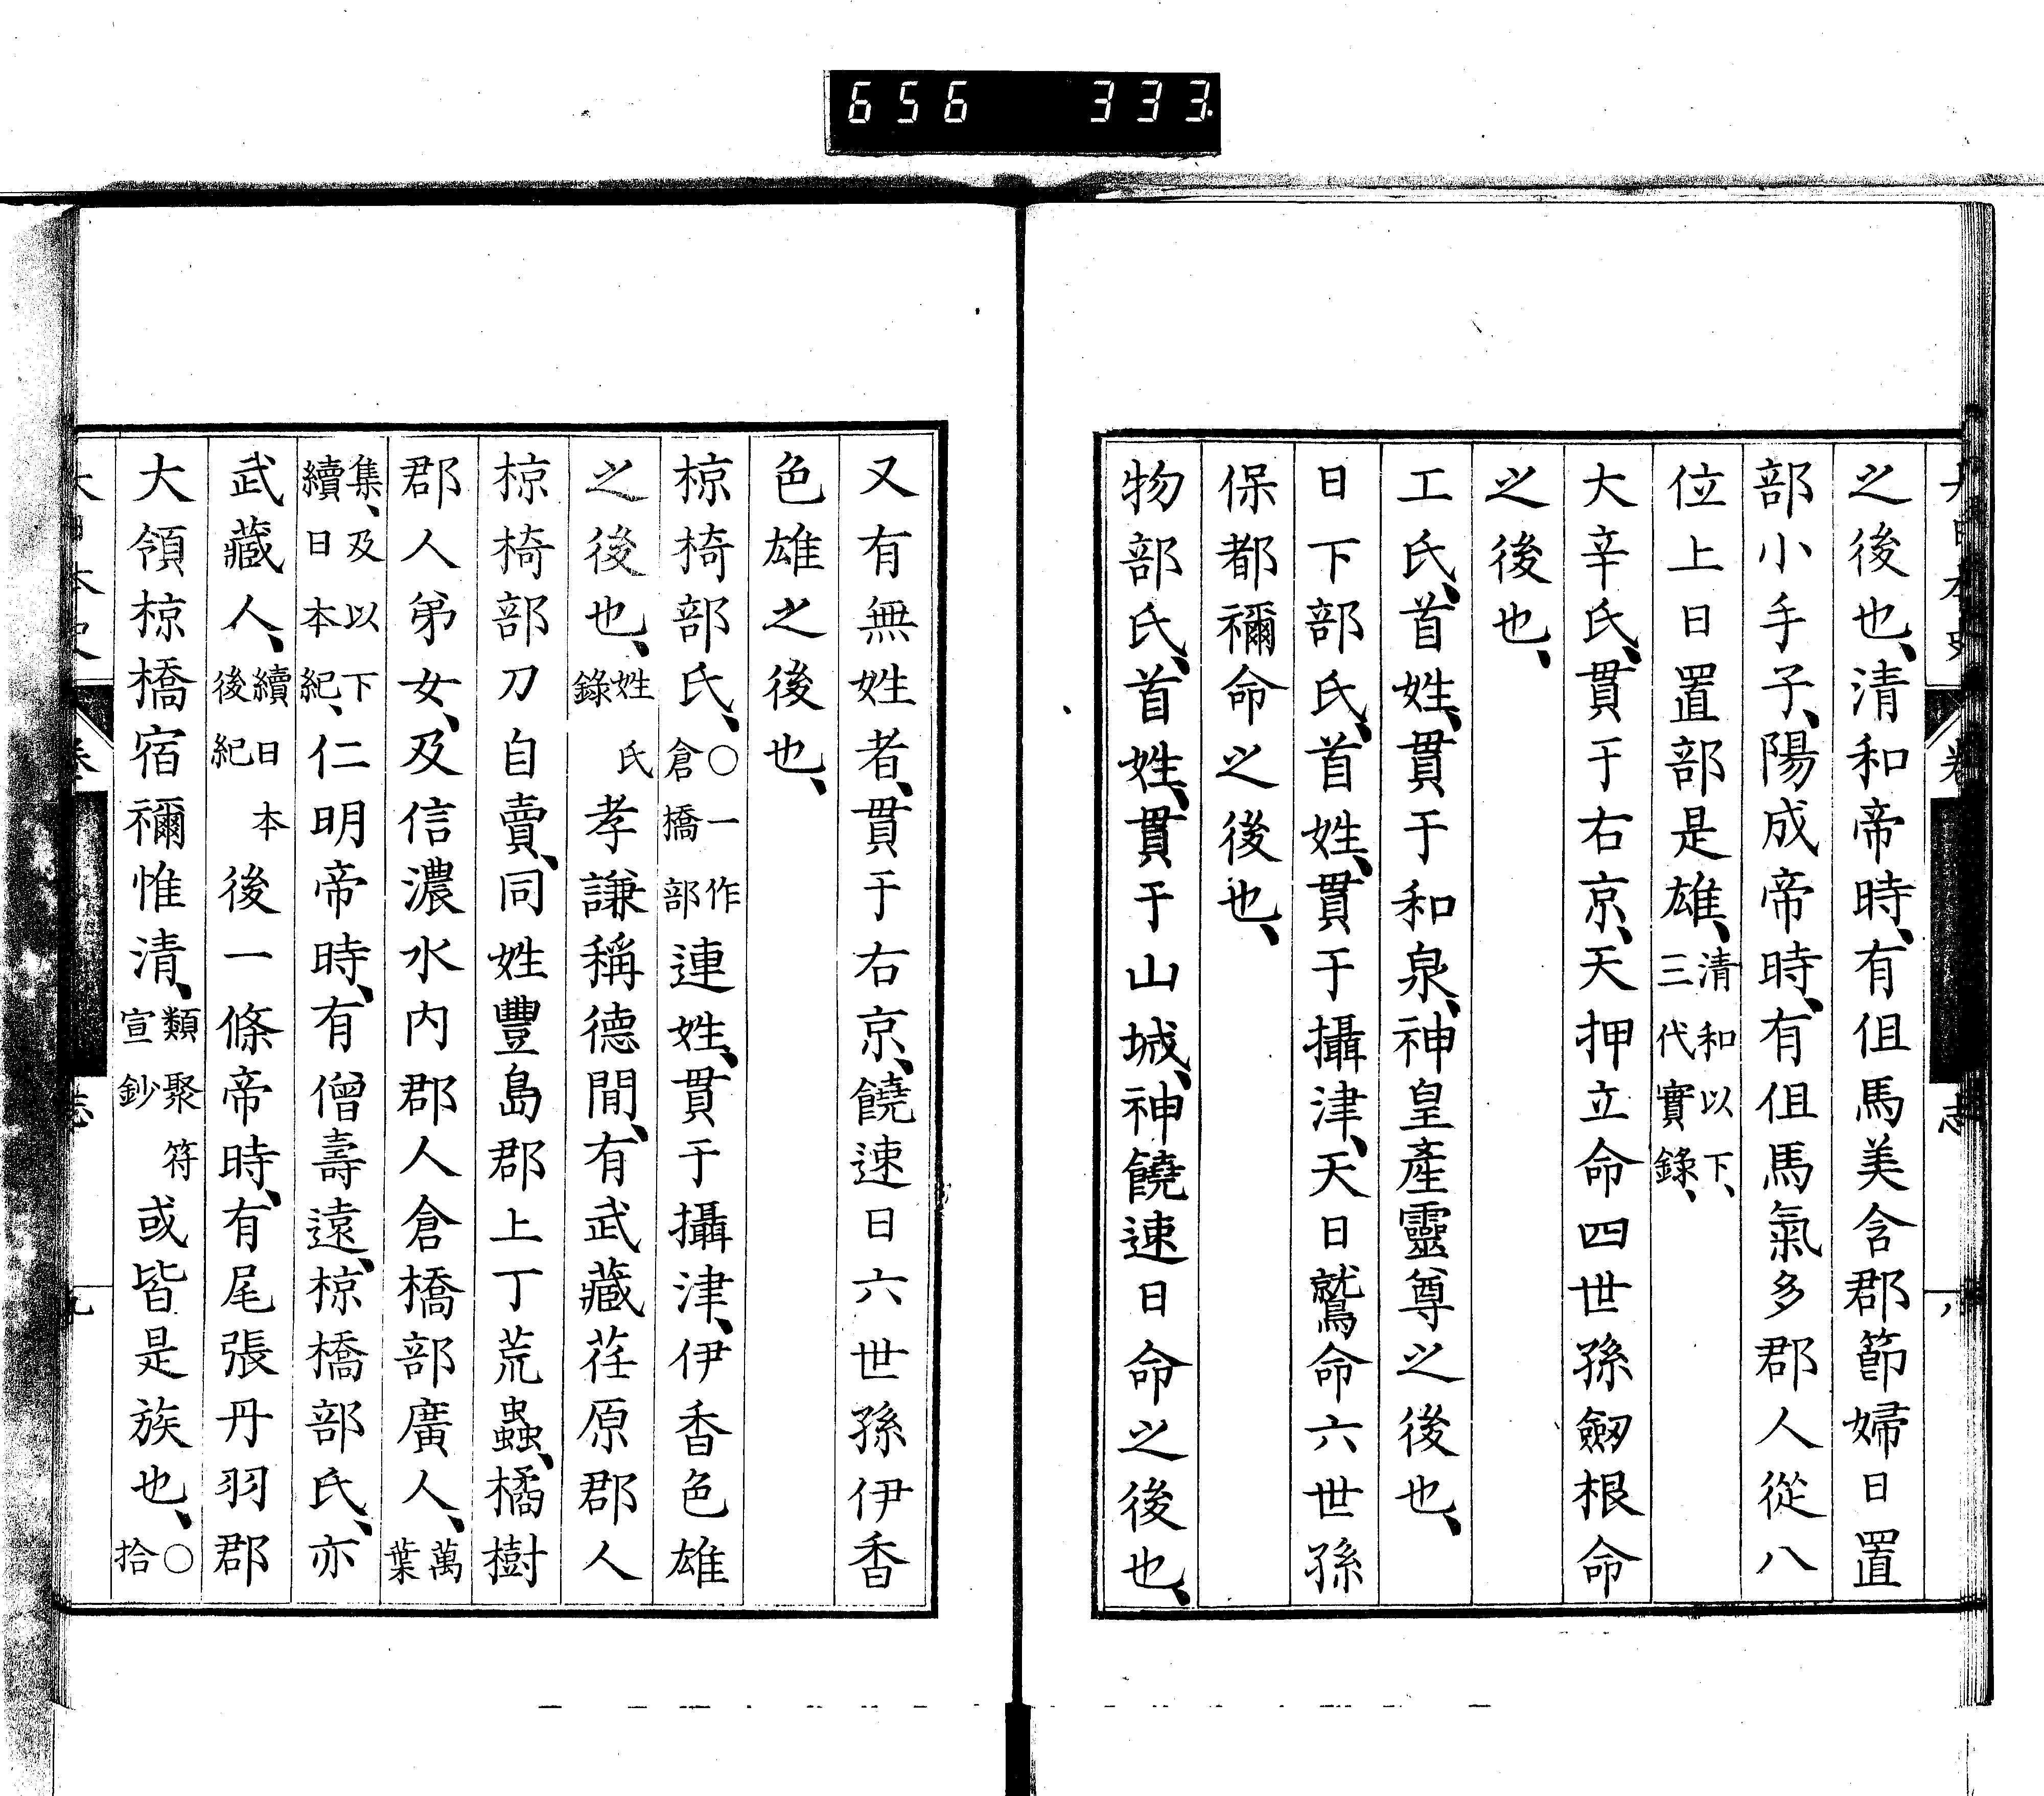 656 333
之後也、清和帝時、有伹馬美含郡節婦日置
部小手子、陽成帝時、有伹馬氣多郡人從八
位上日置部是雄、清和以下、三代實錄、
大辛氏、貫于右京、天押立命四世孫劔根命
之後也、
工氏、首姓、貫于和泉、神皇產靈尊之後也、
日下部氏、首姓、貫于攝津、天日鷲命六世孫
保都禰命之後也、
物部氏、首姓、貫于山城、神饒速日命之後也、
又有無姓者、貫于右京、饒速日六世孫伊香
色雄之後也、
椋椅部氏、○一作倉橋部連姓、貫于攝津、伊香色雄
之後也、姓氏錄孝謙稱德間、有武藏荏原郡人
椋椅部刀自賣、同姓豐島郡上丁荒蟲、橘樹
郡人弟女、及信濃水內郡人倉橋部廣人、萬葉
集、及以下續日本紀、仁明帝時、有僧壽遠、椋橋部氏、亦
武藏人、續日本後紀後一條帝時、有尾張丹羽郡
大領椋橋宿禰惟清、類聚符宣鈔或皆是族也、○拾